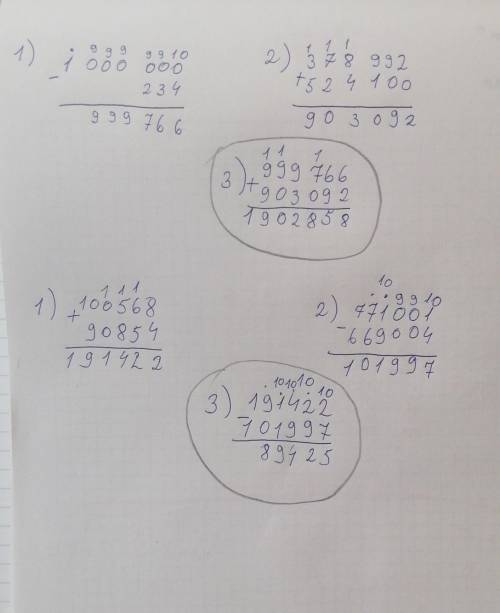 1) . 9 9 9 9 9 10
1 000 000
- 234
999 766
2) 1 1 1
378 992
+ 524 100
903 092
3) 1 1 1
999 766
+ 903 092
1902858
1) 1 1 1
+ 100568
90854
191422
2) 10
. . 9 9 10
771001
- 669004
101997
3) . 10 10 10 . 10
191422
- 101997
89425